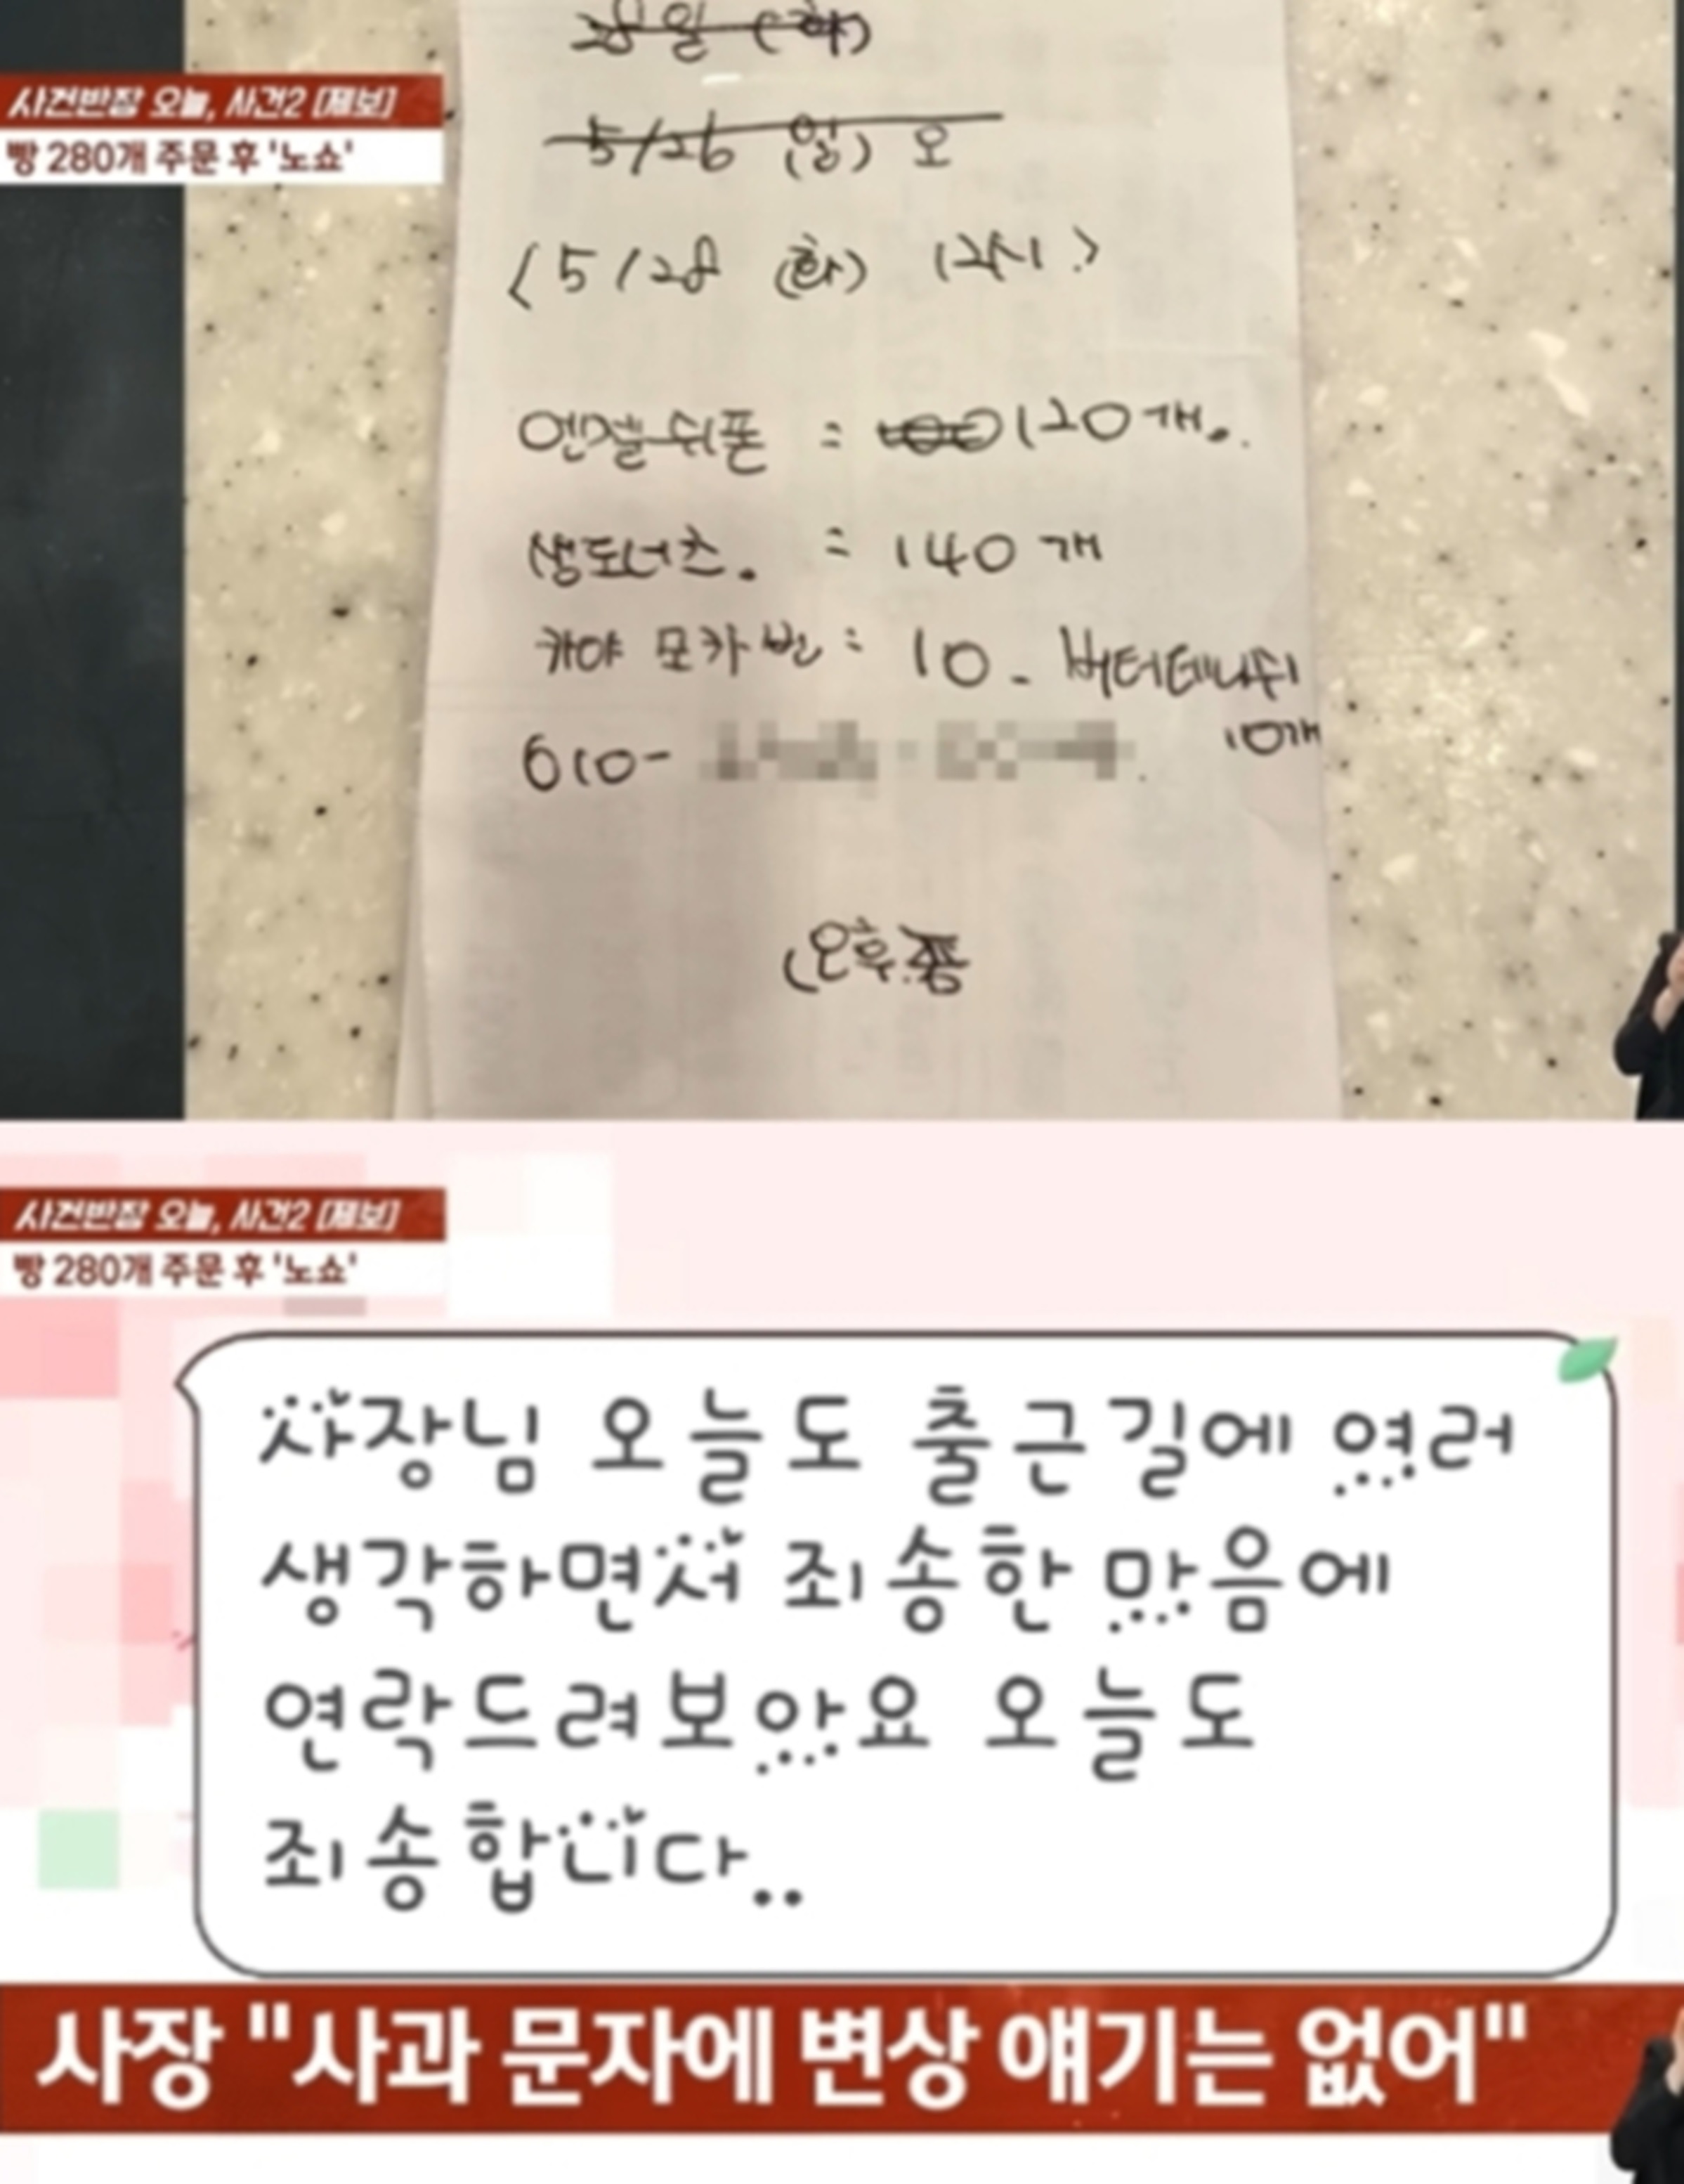 28일 (화)
사건반장 오늘, 사건2 [제보]
빵 280개 주문 후 '노쇼'
5/26 (일) 오
<5/28 (화) 12시.>
엔젤쉬폰 = 100 120개.
생도너츠. = 140개
카야 모카번 = 10. 버터데니쉬
10개
010-
(오후쯤
사건반장 오늘, 사건2 [제보]
빵 280개 주문 후 '노쇼'
사장님 오늘도 출근길에 여러
생각하면서 죄송한 맘음에
연락드려보아요 오늘도
죄송합니다..
사장 "사과 문자에 변상 얘기는 없어"